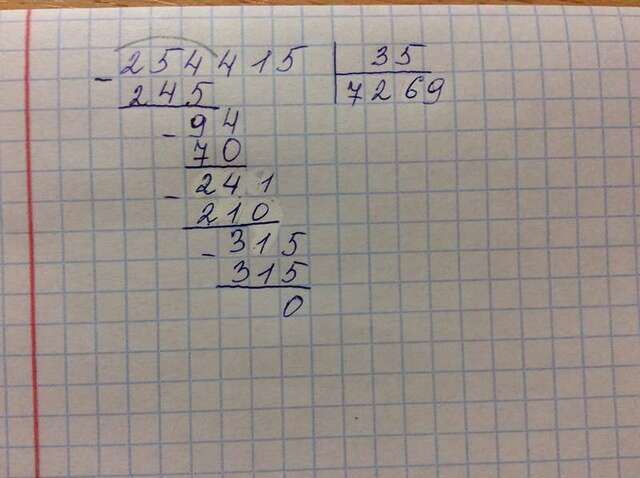 254415 35
- 245 7269
- 94
70
- 241
210
- 315
315
0